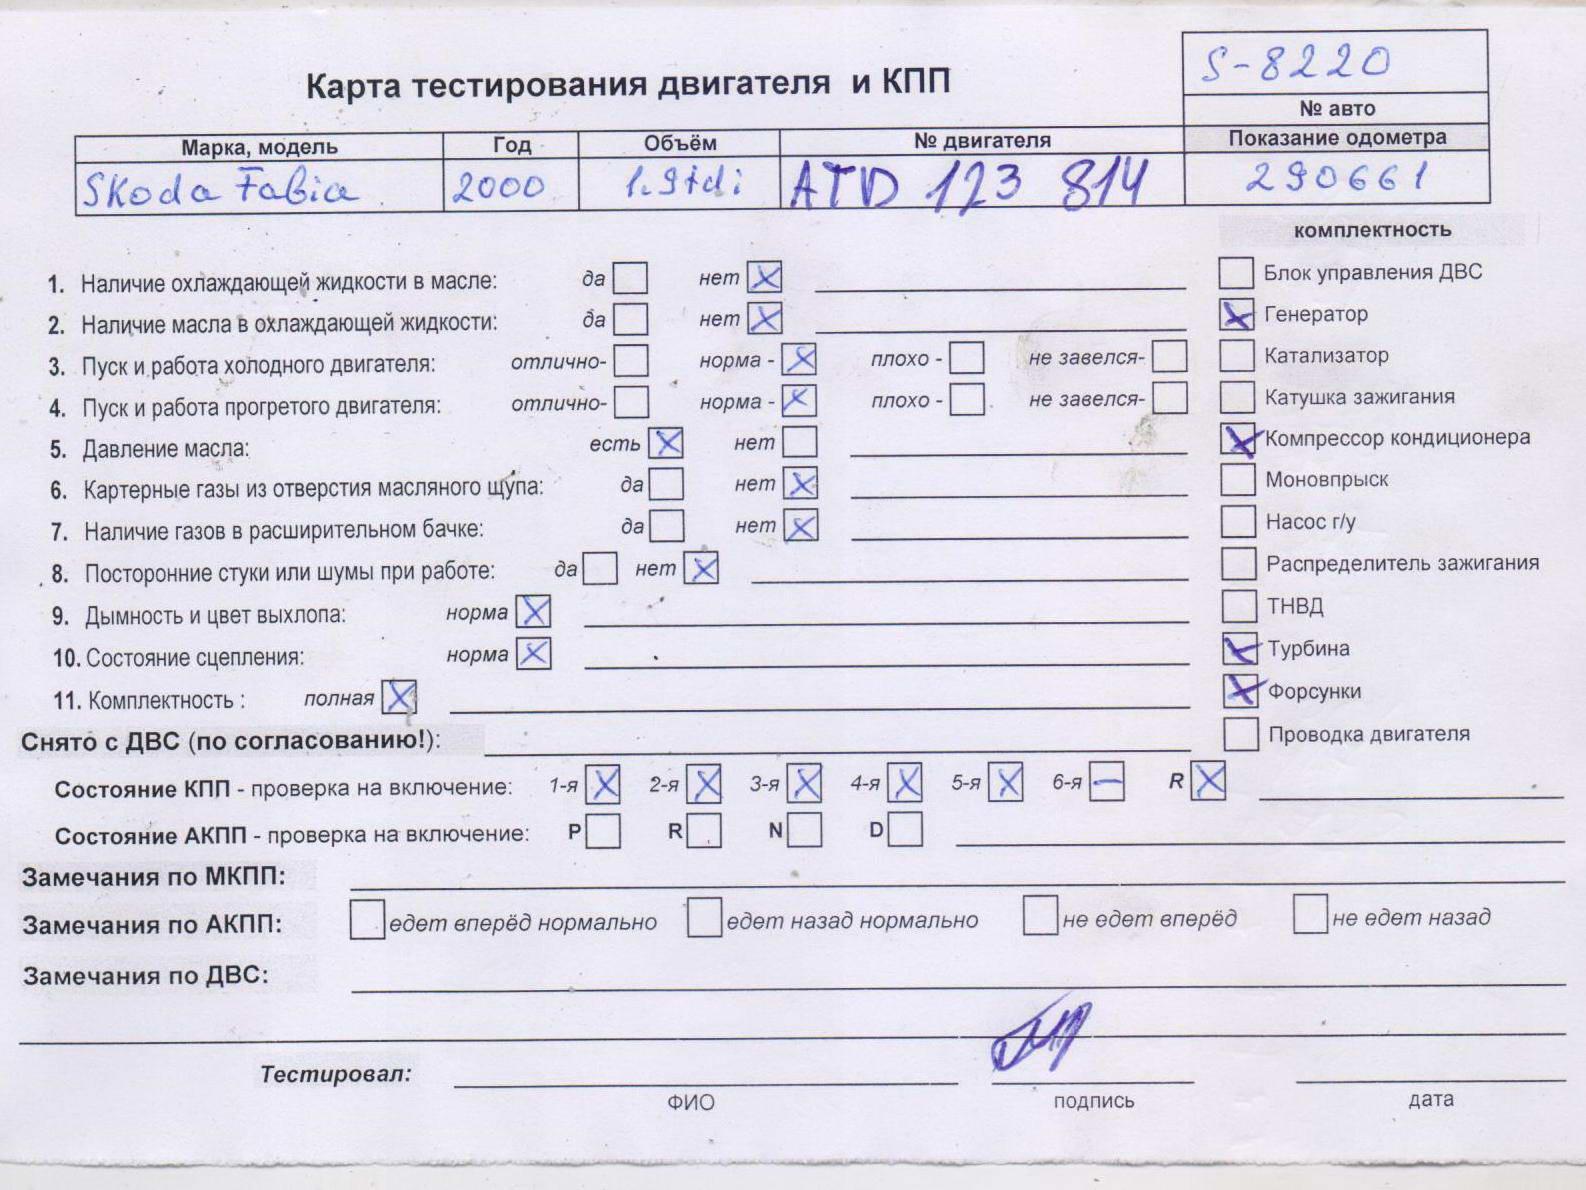 S-8220
Карта тестирования двигателя и КПП
№ авто
Марка, модель Год Объём № двигателя Показание одометра
Skoda Fabia 2000 1.9tdi ATD 123 814 290661
комплектность
1. Наличие охлаждающей жидкости в масле: да нет X
Блок управления ДВС
2. Наличие масла в охлаждающей жидкости: да нет X
X Генератор
3. Пуск и работа холодного двигателя: отлично- норма - X плохо - не завелся-
Катализатор
4. Пуск и работа прогретого двигателя: отлично- норма - X плохо - не завелся-
Катушка зажигания
5. Давление масла: есть X нет
X Компрессор кондиционера
6. Картерные газы из отверстия масляного щупа: да нет X
Моновпрыск
7. Наличие газов в расширительном бачке: да нет X
Насос г/у
8. Посторонние стуки или шумы при работе: да нет X
Распределитель зажигания
9. Дымность и цвет выхлопа: норма X
ТНВД
10. Состояние сцепления: норма X
X Турбина
11. Комплектность : полная X
X Форсунки
Снято с ДВС (по согласованию!):
Проводка двигателя
Состояние КПП - проверка на включение: 1-я X 2-я X 3-я X 4-я X 5-я X 6-я – R X
Состояние АКПП - проверка на включение: P R N D
Замечания по МКПП:
Замечания по АКПП: едет вперёд нормально едет назад нормально не едет вперёд не едет назад
Замечания по ДВС:
Тестировал:
ФИО подпись дата